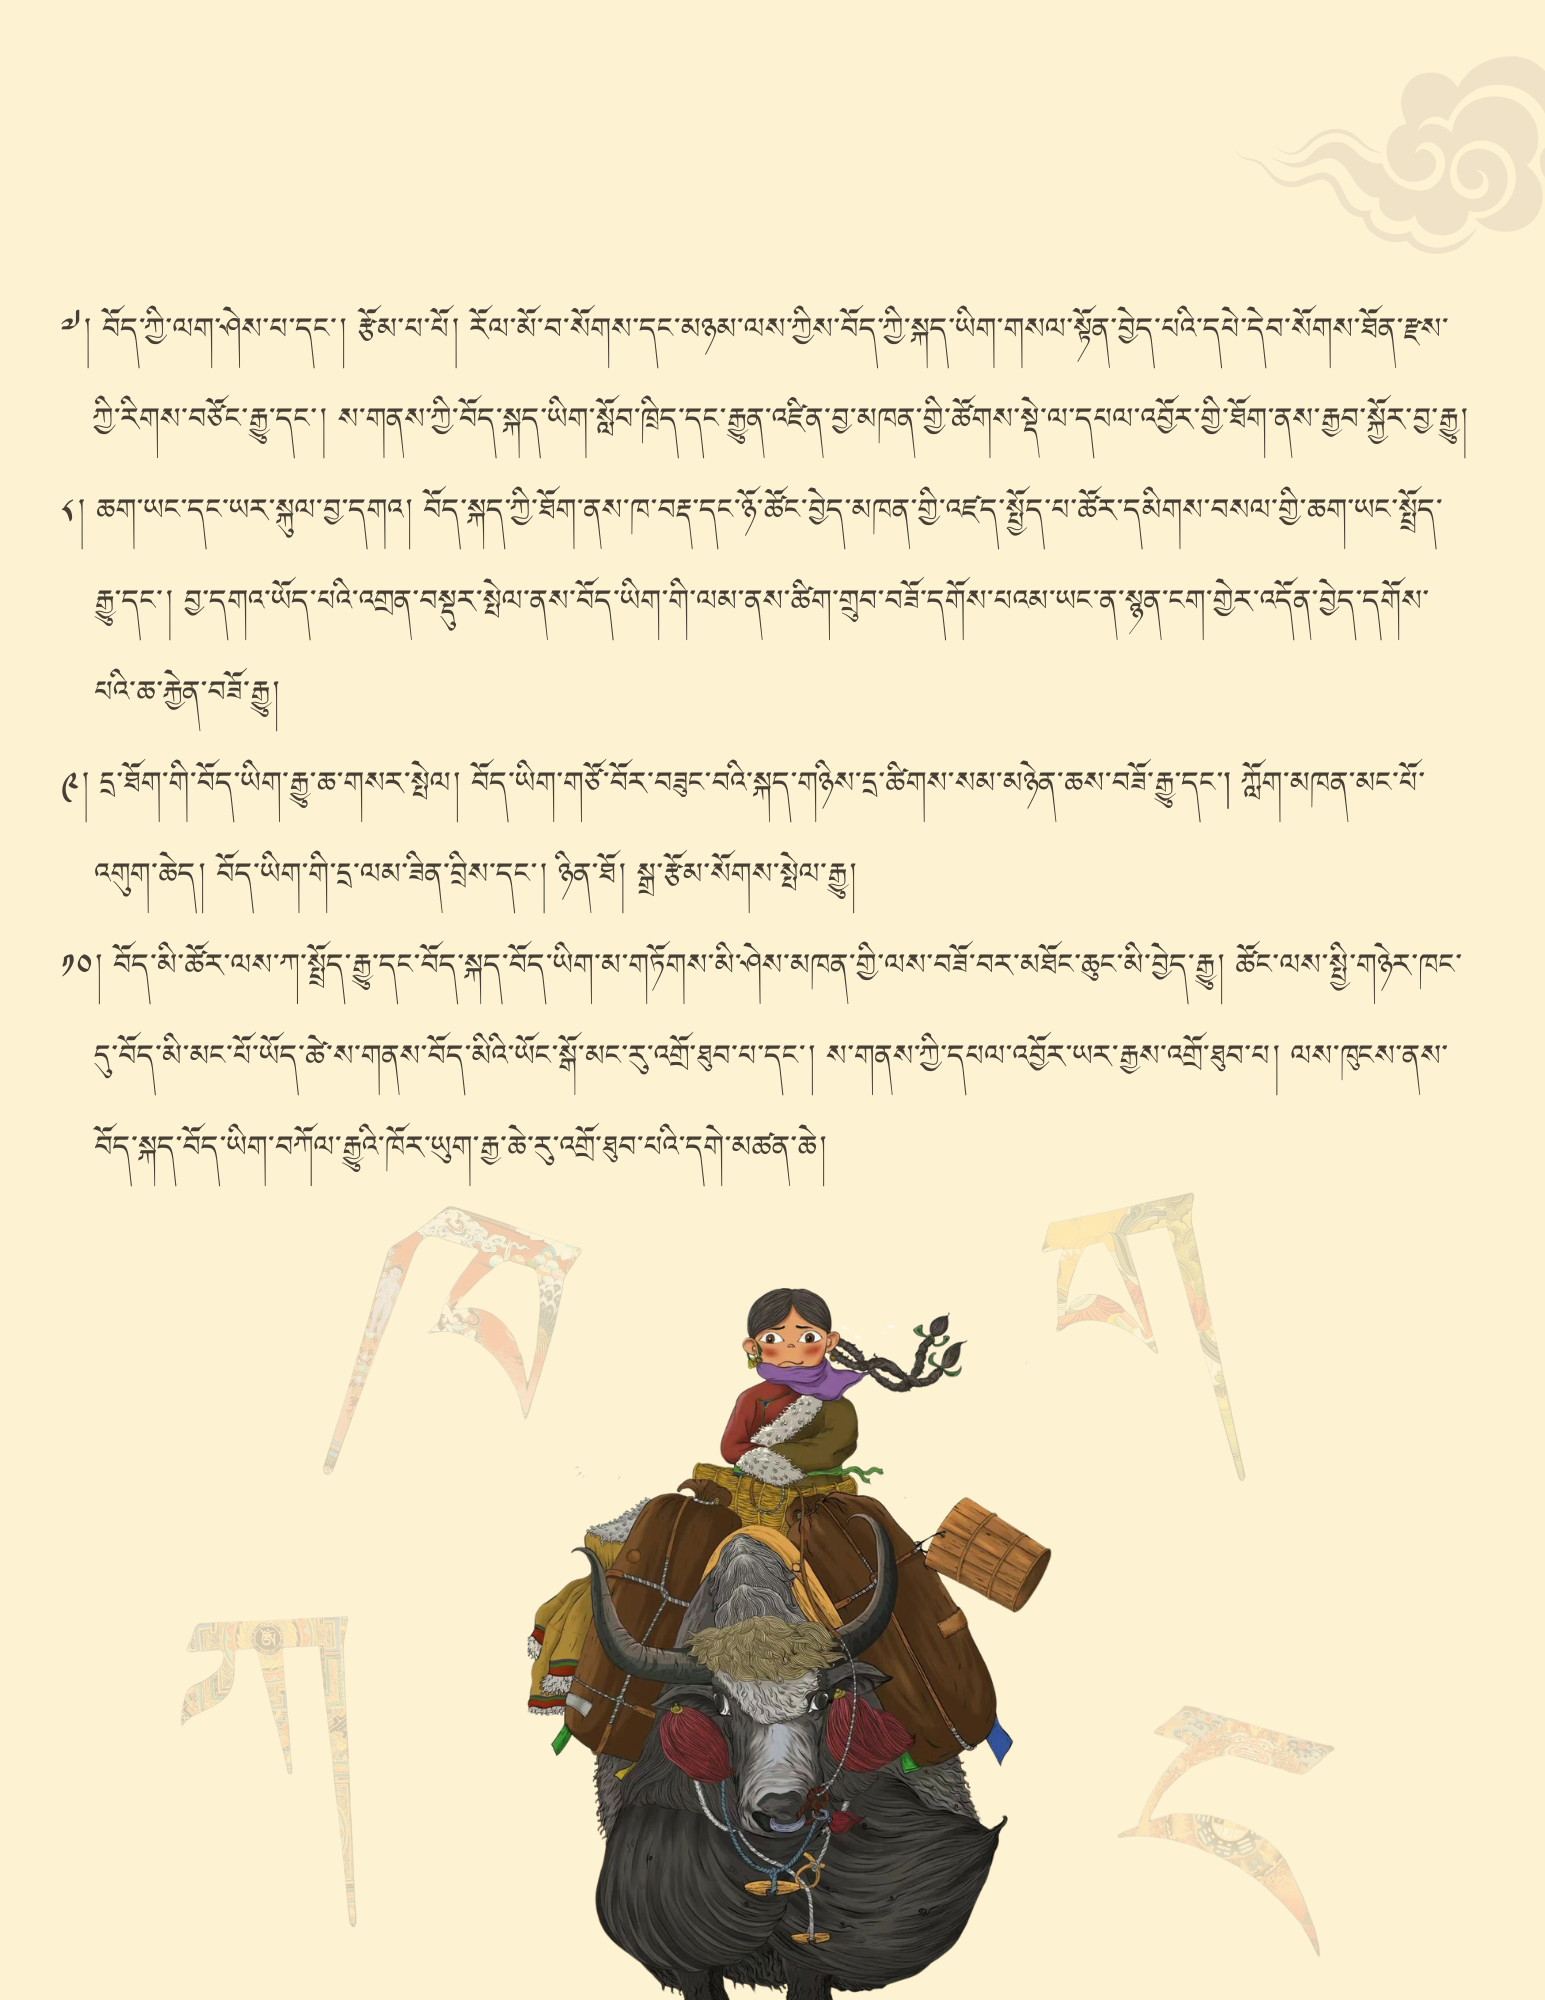 ༧། བོད་ཀྱི་ལག་ཤེས་པ་དང་། རྩོམ་པ་པོ། རོལ་མོ་བ་སོགས་དང་མཉམ་ལས་ཀྱིས་བོད་ཀྱི་སྐད་ཡིག་གསལ་སྟོན་བྱེད་པའི་དཔེ་དེབ་སོགས་ཐོན་རྫས་
ཀྱི་རིགས་བཙོང་རྒྱུ་དང་། ས་གནས་ཀྱི་བོད་སྐད་ཡིག་སློབ་ཁྲིད་དང་རྒྱུན་འཛིན་བྱ་མཁན་གྱི་ཚོགས་སྡེ་ལ་དཔལ་འབྱོར་གྱི་ཐོག་ནས་རྒྱབ་སྐྱོར་བྱ་རྒྱུ།
༨། ཆག་ཡང་དང་ཡར་སྐུལ་བྱ་དགའ། བོད་སྐད་ཀྱི་ཐོག་ནས་ཁ་བརྡ་དང་ཉོ་ཚོང་བྱེད་མཁན་གྱི་འཛད་སྤྱོད་པ་ཚོར་དམིགས་བསལ་གྱི་ཆག་ཡང་སྤྲོད་
རྒྱུ་དང་། བྱ་དགའ་ཡོད་པའི་འགྲན་བསྡུར་སྤེལ་ནས་བོད་ཡིག་གི་ལམ་ནས་ཚིག་གྲུབ་བཟོ་དགོས་པའམ་ཡང་ན་སྙན་ངག་གྱེར་འདོན་བྱེད་དགོས་
པའི་ཆ་རྐྱེན་བཟོ་རྒྱུ།
༩། དྲ་ཐོག་གི་བོད་ཡིག་རྒྱུ་ཆ་གསར་སྤེལ། བོད་ཡིག་གཙོ་བོར་བཟུང་བའི་སྐད་གཉིས་དྲ་ཚིགས་སམ་མཉེན་ཆས་བཟོ་རྒྱུ་དང་། ཀློག་མཁན་མང་པོ་
འགུག་ཆེད། བོད་ཡིག་གི་དྲ་ལམ་ཟིན་བྲིས་དང་། ཉིན་ཐོ། སྒྲ་རྩོམ་སོགས་སྤེལ་རྒྱུ།
༡༠། བོད་མི་ཚོར་ལས་ཀ་སྤྲོད་རྒྱུ་དང་བོད་སྐད་བོད་ཡིག་མ་གཏོགས་མི་ཤེས་མཁན་གྱི་ལས་བཟོ་བར་མཐོང་ཆུང་མི་བྱེད་རྒྱུ། ཚོང་ལས་སྤྱི་གཉེར་ཁང་
དུ་བོད་མི་མང་པོ་ཡོད་ཚེ་ས་གནས་བོད་མིའི་ཡོང་སྒོ་མང་རུ་འགྲོ་ཐུབ་པ་དང་། ས་གནས་ཀྱི་དཔལ་འབྱོར་ཡར་རྒྱས་འགྲོ་ཐུབ་པ། ལས་ཁུངས་ནས་
བོད་སྐད་བོད་ཡིག་བཀོལ་རྒྱུའི་ཁོར་ཡུག་རྒྱ་ཆེ་རུ་འགྲོ་ཐུབ་པའི་དགེ་མཚན་ཆེ།
ཁ
ག
ཀ
ང